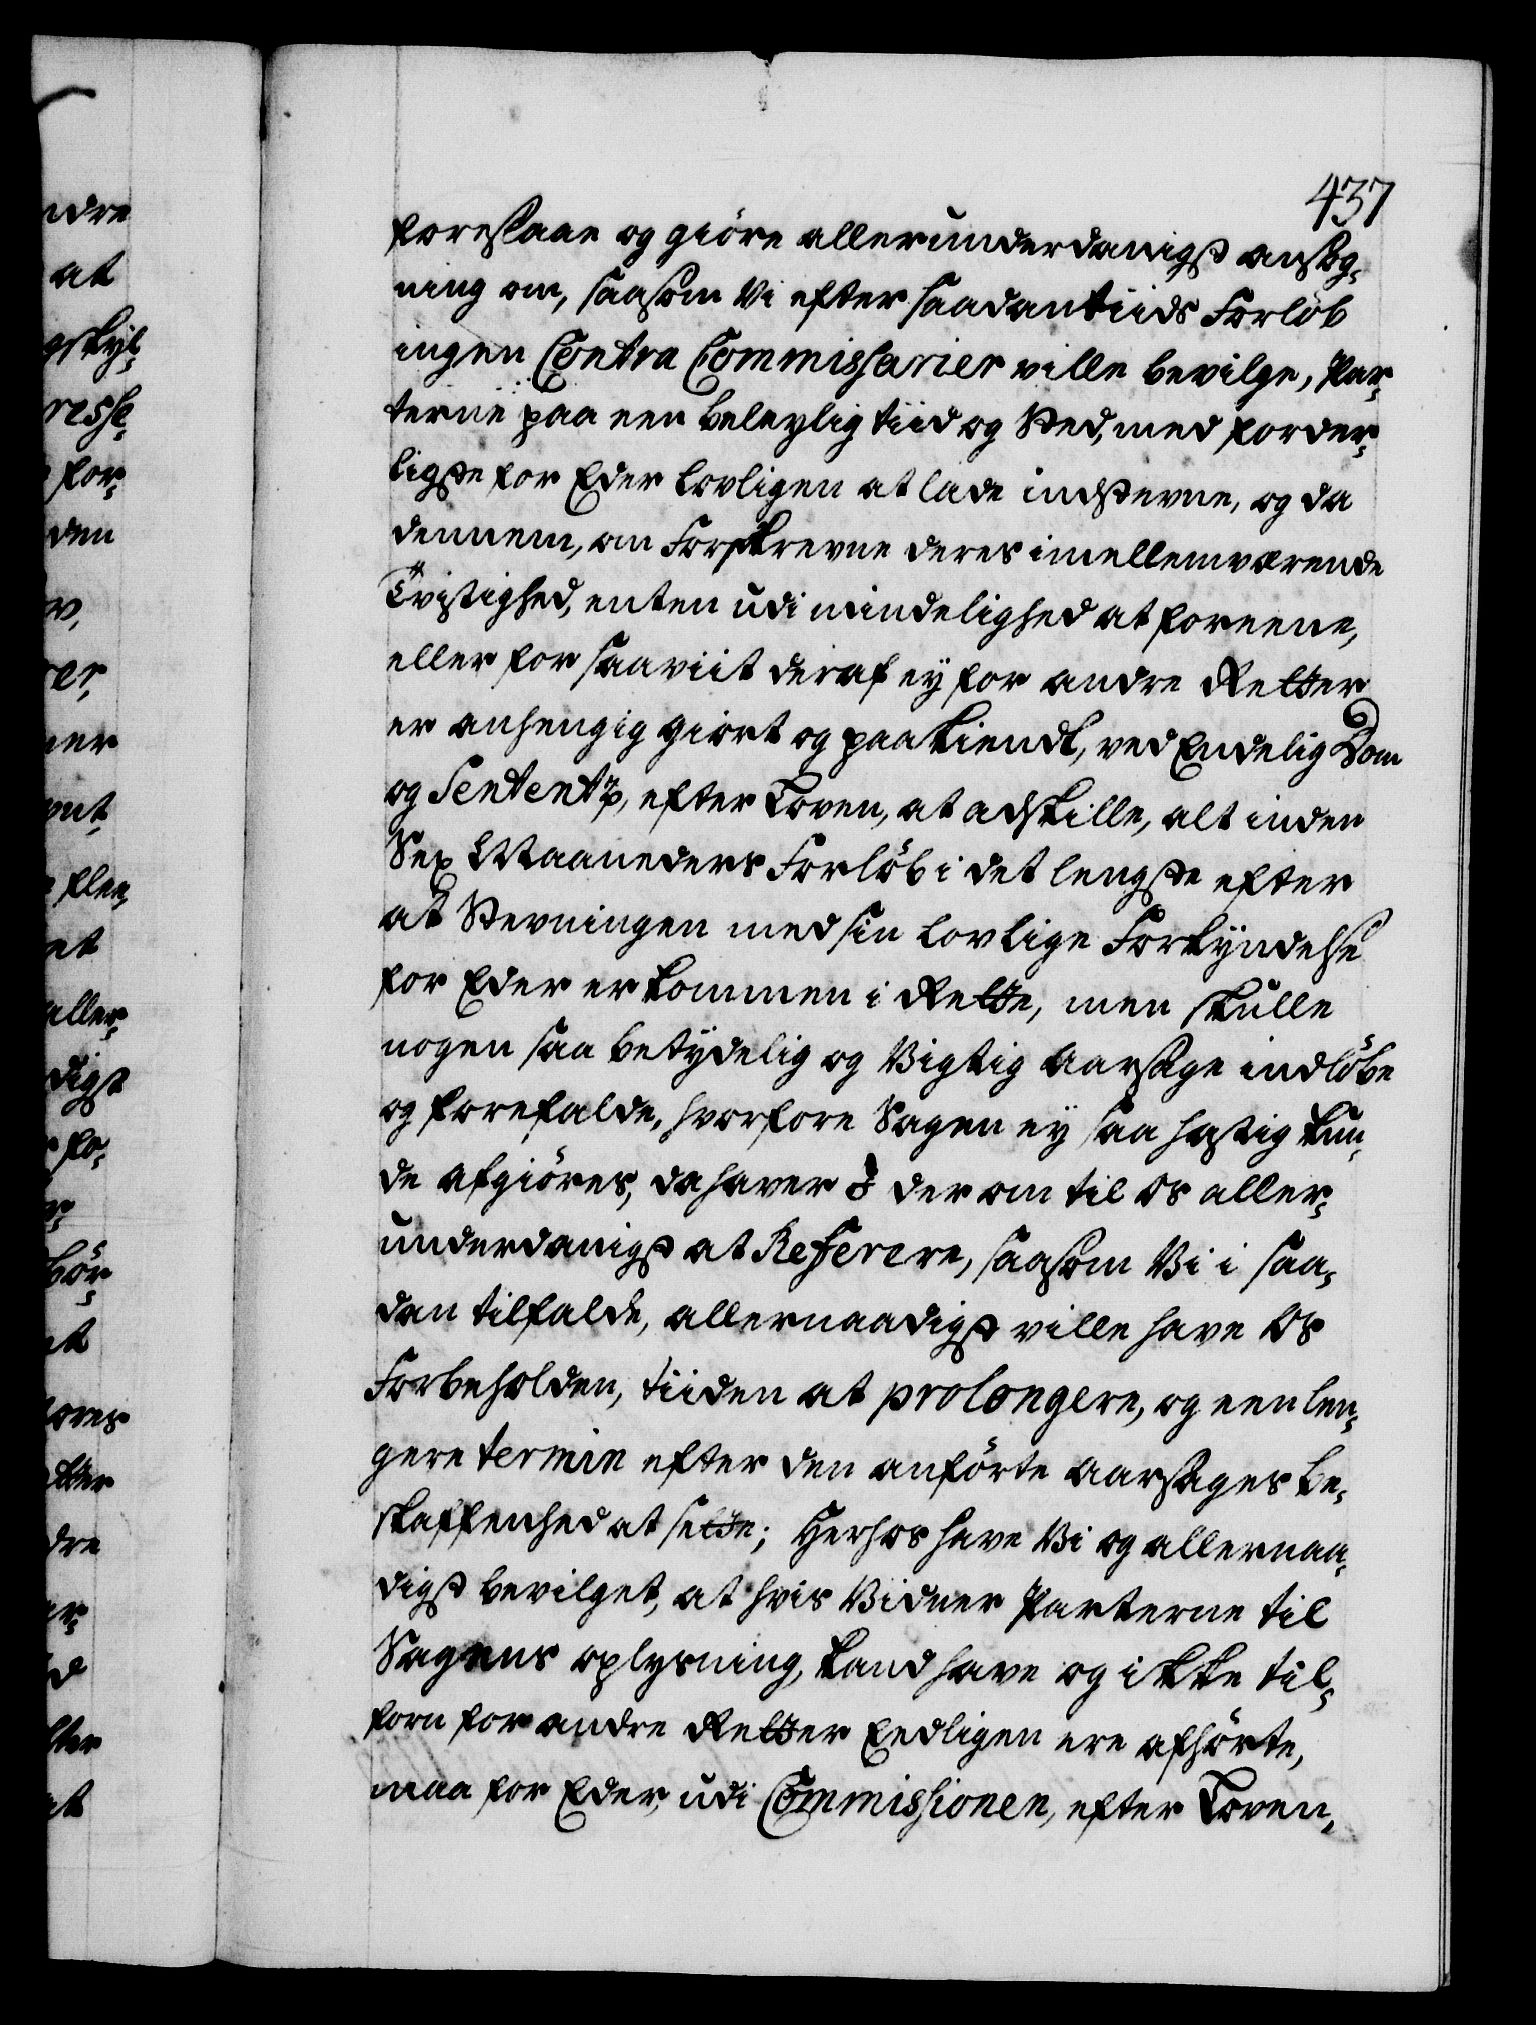 437
foreslaae og giöre allerunderdanigst ansög¬
ning om, saasom Vi efter saadan tiids Forlöb
ingen Contra Commissarier ville bevilge, Par¬
terne paa een beleylig tiid og Sted, med forder¬
ligste for Eder lovligen at lade indstevne, og da
dennem, om Forskrevne deres imellemværende
Tvistighed, enten udi mindelighed at foreene,
eller for saaviit deraf ey for andre Retter
er anhengig giort og paakiendt, ved Endelig Dom
og Sententz, efter Loven, at adskille, alt inden
Sex Maaneders Forlöb i det lengste efter
at Stevningen med sin lovlige Forkyndelse
for Eder er kommen i Rette, men skulle
nogen saa betydelig og Vigtig Aarsage indlöbe
og forefalde, hvorfore Sagen ey saa hastig kun¬
de afgiöres, da haver I der om til Os aller¬
underdanigst at Referere, saasom Vi i saa¬
dan tilfalde, allernaadigst ville have Os
Forbeholden, tiiden at prolongere, og een len¬
gere termin efter den anförte Aarsages be¬
skaffenhed at sette; Herhos have Vi og allernaa¬
digst bevilget, at hvis Vidner Parterne til
Sagens oplysning, kand have og ikke til¬
forn for andre Retter Eedligen ere afhörte,
maa for Eder, udi Commissionen, efter Loven,
ndre
at
gskyl¬
resse¬
for¬
den
er,
ner
at
aller¬
digst
fo¬
bör¬
dre